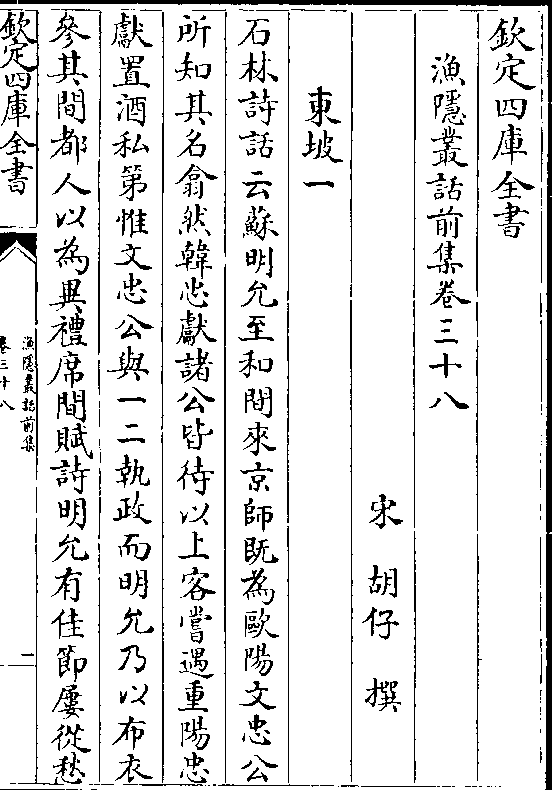 欽定四庫全書
漁隱叢話前集卷三十八
宋 胡仔 撰
東坡一
石林詩話云蘇明允至和間來京師既為歐陽文忠公
所知其名翕然韓忠獻諸公皆待以上客嘗遇重陽忠
獻置酒私第惟文忠公與一二執政而明允乃以布衣
參其間都人以為異禮席間賦詩明允有佳節屢從愁
欽定四庫全書
漁隱叢話前集
卷三十八
一